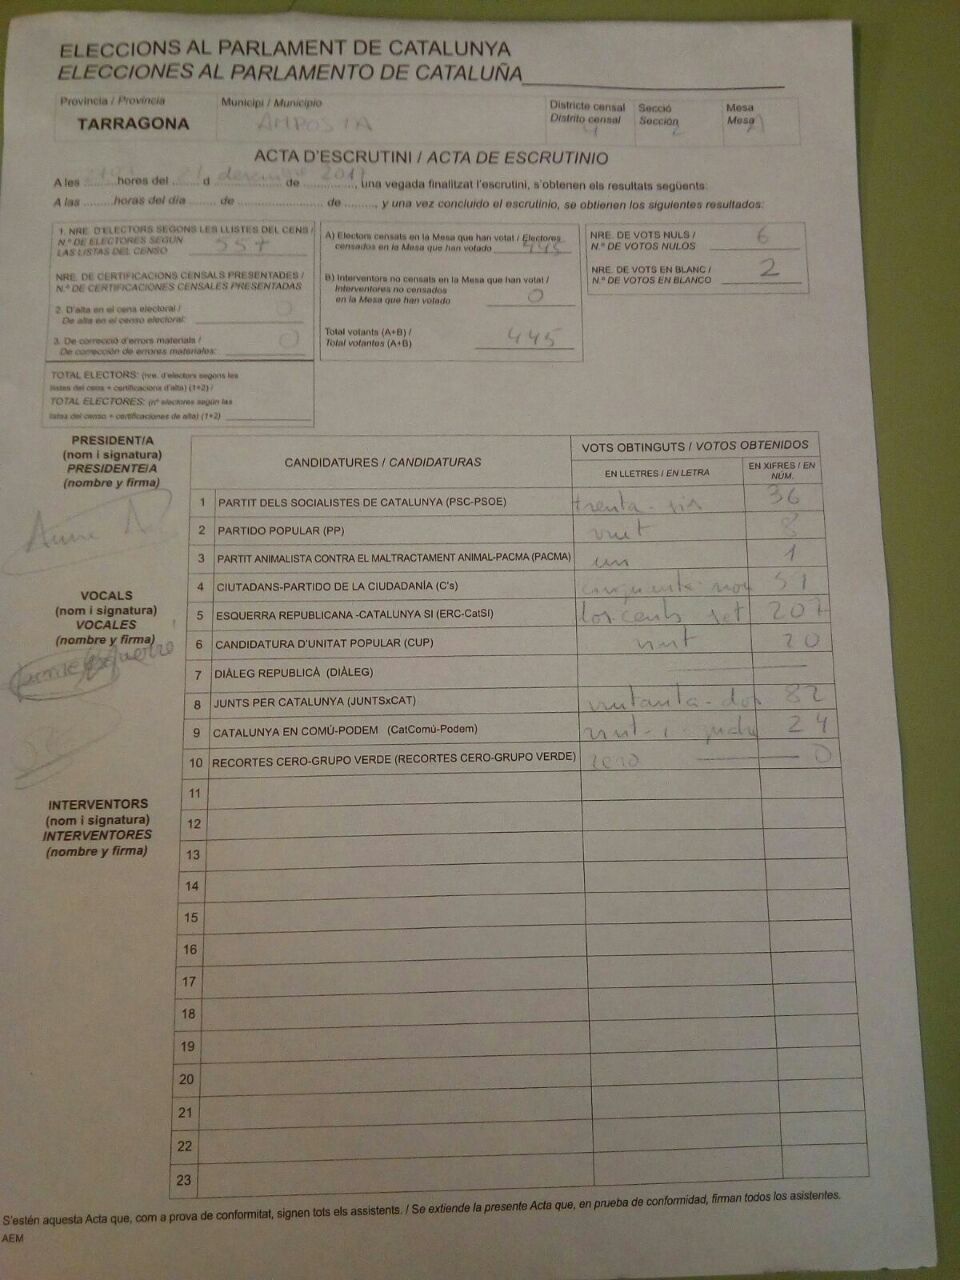 ELECCIONS AL PARLAMENT DE CATALUNYA
ELECCIONES AL PARLAMENTO DE CATALUÑA
Província / Provincia
Municipi / Municipio
Districte censal
Distrito censal
Secció
Sección
Mesa
Mesa
TARRAGONA
AMPOSTA
4
2
ACTA D'ESCRUTINI / ACTA DE ESCRUTINIO
A les hores del d desembre 2017 de , una vegada finalitzat l'escrutini, s'obtenen els resultats següents:
A las horas del día de de , y una vez concluido el escrutinio, se obtienen los siguientes resultados:
1. NRE. D'ELECTORS SEGONS LES LLISTES DEL CENS /
N.º DE ELECTORES SEGÚN
LAS LISTAS DEL CENSO 557
NRE. DE CERTIFICACIONS CENSALS PRESENTADES /
N.º DE CERTIFICACIONES CENSALES PRESENTADAS
2. D'alta en el cens electoral /
De alta en el censo electoral: 0
3. De correcció d'errors materials /
De corrección de errores materiales: 0
TOTAL ELECTORS: (nre. d'electors segons les
llistes del cens + certificacions d'alta) (1+2) /
TOTAL ELECTORES: (nº electores según las
listas del censo + certificaciones de alta) (1+2)
A) Electors censats en la Mesa que han votat / Electores
censados en la Mesa que han votado 445
B) Interventors no censats en la Mesa que han votat /
Interventores no censados
en la Mesa que han votado 0
Total votants (A+B) /
Total votantes (A+B) 445
NRE. DE VOTS NULS /
N.º DE VOTOS NULOS 6
NRE. DE VOTS EN BLANC /
N.º DE VOTOS EN BLANCO 2
PRESIDENT/A
(nom i signatura)
PRESIDENTE/A
(nombre y firma)
VOCALS
(nom i signatura)
VOCALES
(nombre y firma)
INTERVENTORS
(nom i signatura)
INTERVENTORES
(nombre y firma)
CANDIDATURES / CANDIDATURAS
VOTS OBTINGUTS / VOTOS OBTENIDOS
EN LLETRES / EN LETRA
EN XIFRES / EN
NÚM.
1 PARTIT DELS SOCIALISTES DE CATALUNYA (PSC-PSOE) trenta-sis 36
2 PARTIDO POPULAR (PP) vuit 8
3 PARTIT ANIMALISTA CONTRA EL MALTRACTAMENT ANIMAL-PACMA (PACMA) un 1
4 CIUTADANS-PARTIDO DE LA CIUDADANÍA (C's) cinquanta-nou 59
5 ESQUERRA REPUBLICANA -CATALUNYA SI (ERC-CatSI) dos-cents set 207
6 CANDIDATURA D'UNITAT POPULAR (CUP) vint 20
7 DIÀLEG REPUBLICÀ (DIÀLEG)
8 JUNTS PER CATALUNYA (JUNTSxCAT) vuitanta-dos 82
9 CATALUNYA EN COMÚ-PODEM (CatComú-Podem) vint-i-quatre 24
10 RECORTES CERO-GRUPO VERDE (RECORTES CERO-GRUPO VERDE) zero 0
11
12
13
14
15
16
17
18
19
20
21
22
23
S'estén aquesta Acta que, com a prova de conformitat, signen tots els assistents. / Se extiende la presente Acta que, en prueba de conformidad, firman todos los asistentes.
AEM